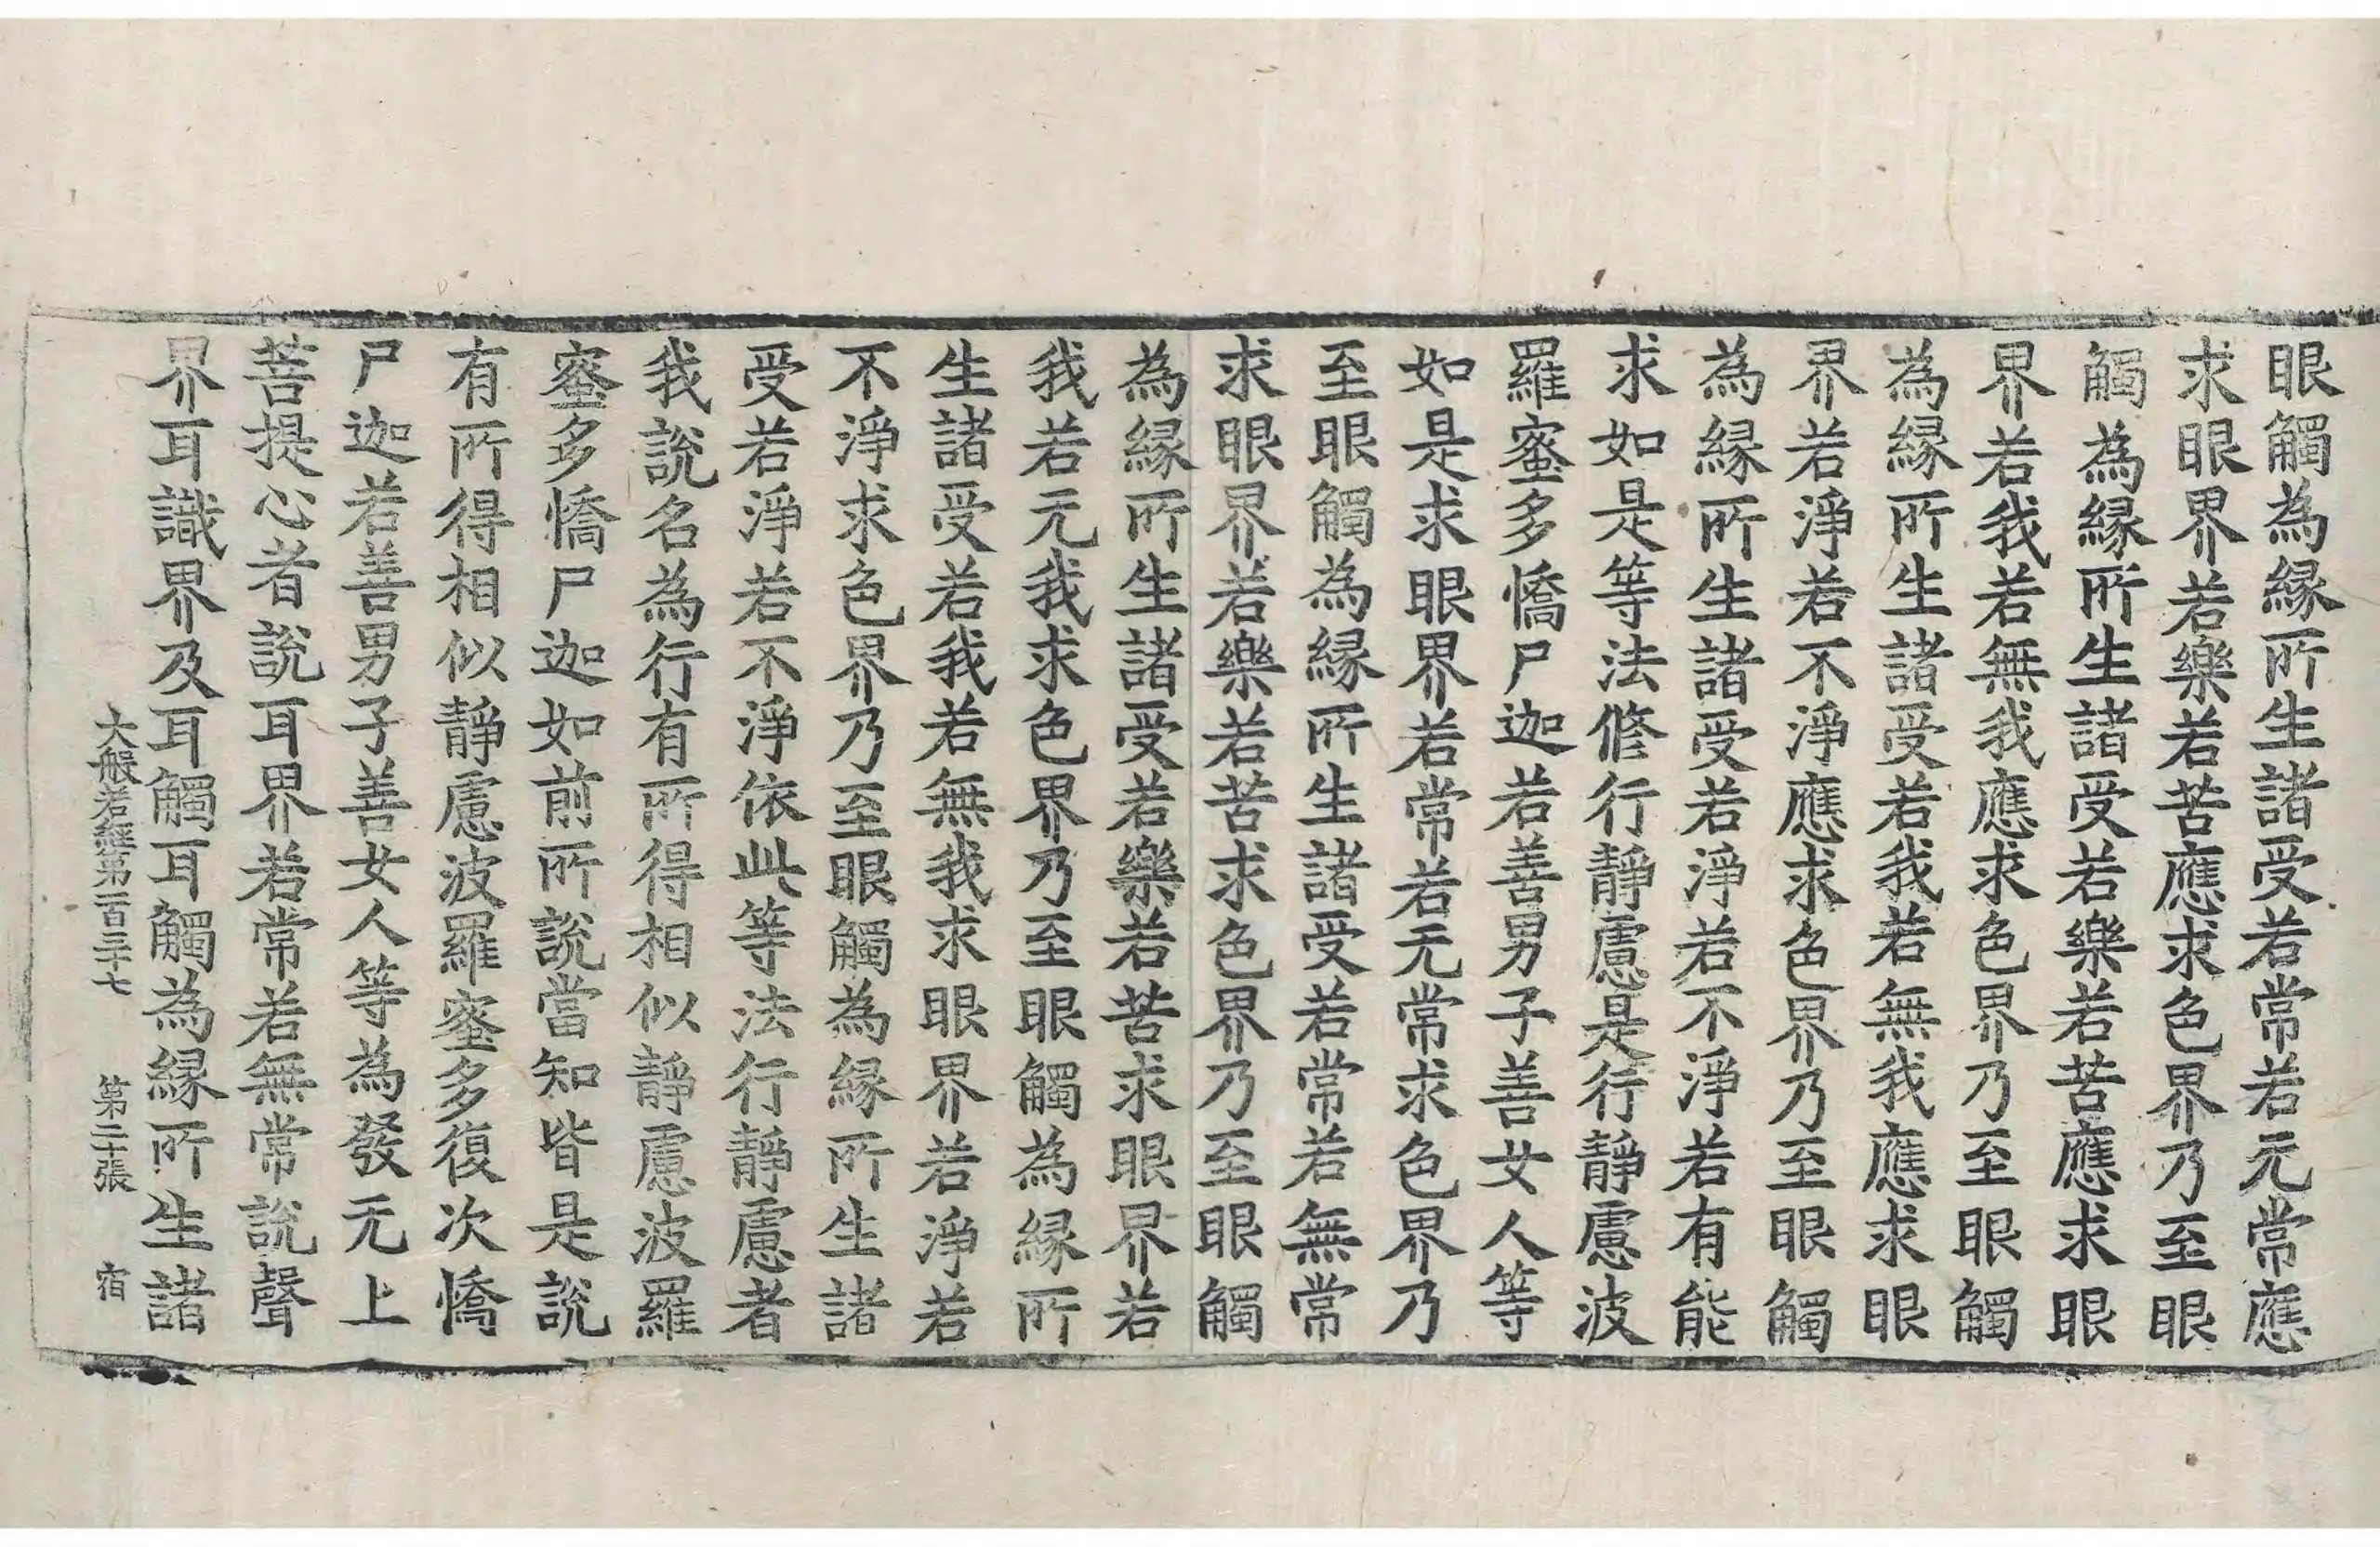 眼觸為縁所生諸受若常若无常應
求眼界若樂若苦應求色界乃至眼
觸為縁所生諸受若樂若苦應求眼
界若我若無我應求色界乃至眼觸
為縁所生諸受若我若無我應求眼
界若淨若不淨應求色界乃至眼觸
為縁所生諸受若淨若不淨若有能
求如是等法修行靜慮是行靜慮波
羅蜜多憍尸迦若善男子善女人等
如是求眼界若常若无常求色界乃
至眼觸為縁所生諸受若常若無常
求眼界若樂若苦求色界乃至眼觸
為縁所生諸受若樂若苦求眼界若
我若无我求色界乃至眼觸為縁所
生諸受若我若無我求眼界若淨若
不淨求色界乃至眼觸為縁所生諸
受若淨若不淨依此等法行靜慮者
我說名為行有所得相似靜慮波羅
蜜多憍尸迦如前所說當知皆是說
有所得相似靜慮波羅蜜多復次憍
尸迦若善男子善女人等為發无上
菩提心者說耳界若常若無常說聲
界耳識界及耳觸耳觸為縁所生諸
大般若經第一百三十七 第二十張 宿